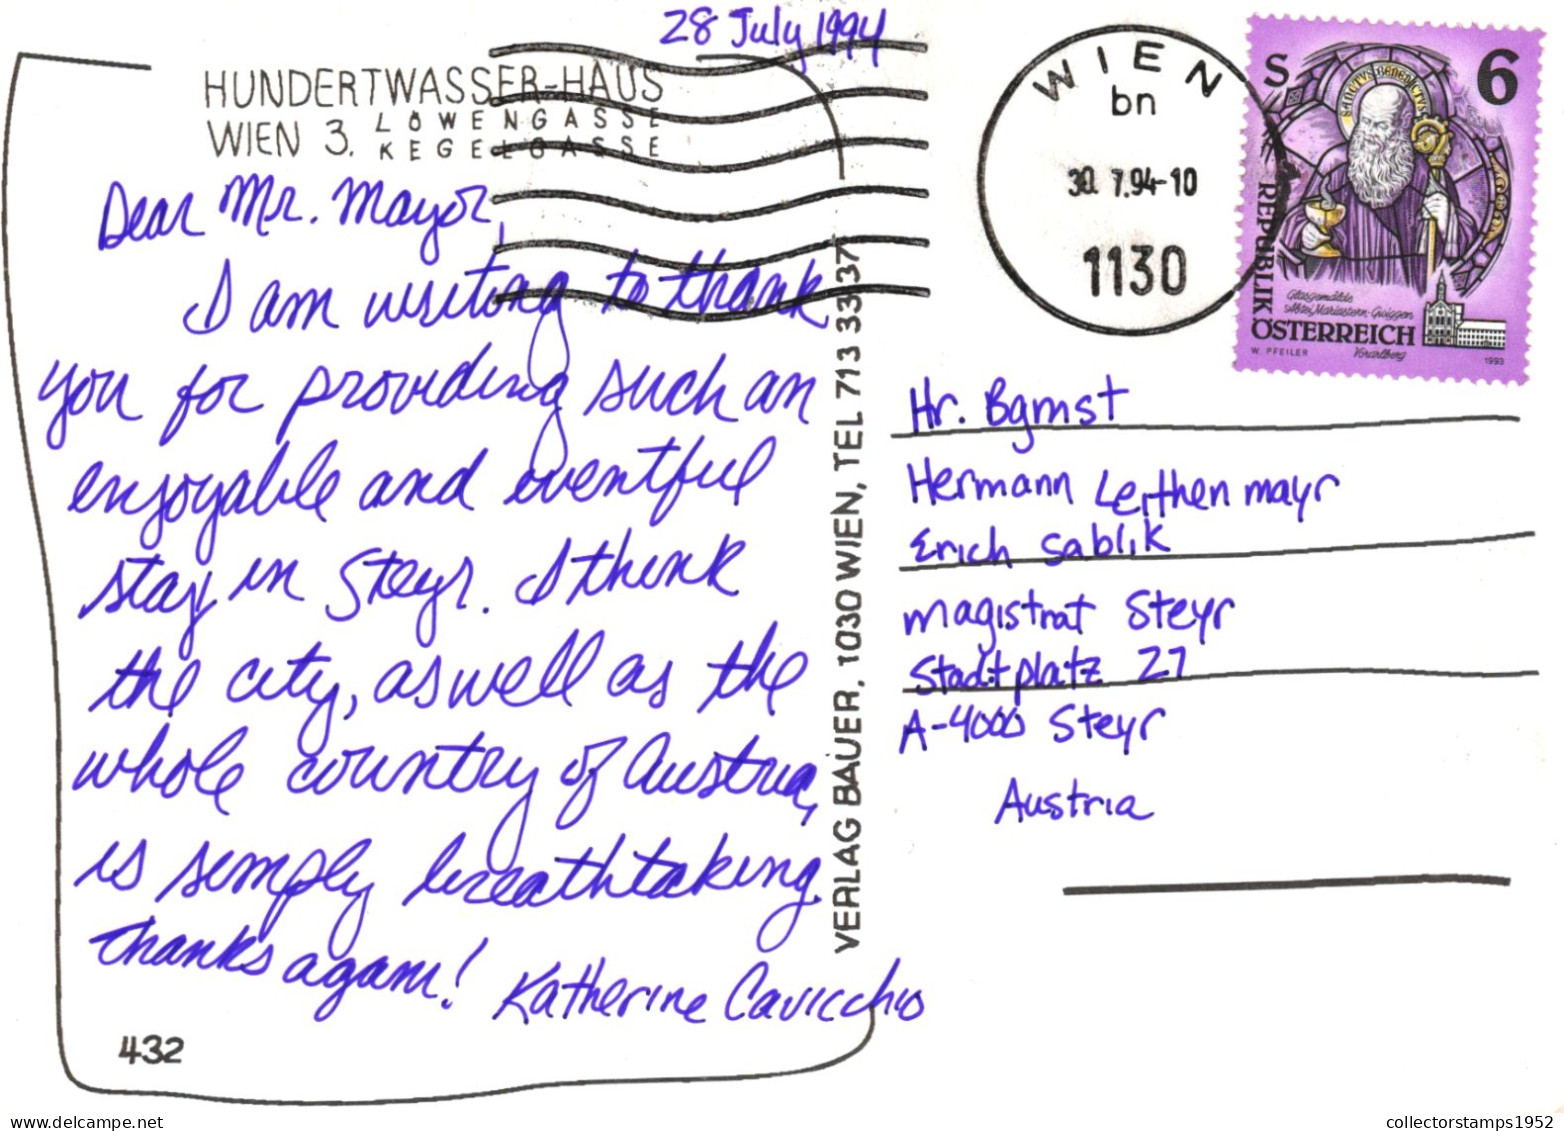 28 July 1994
HUNDERTWASSER-HAUS
WIEN 3. LÖWENGASSE
KEGELGASSE
Dear Mr. Mayor,
I am writing to thank
you for providing such an
enjoyable and eventful
stay in Steyr. I think
the city, as well as the
whole country of Austria,
is simply breathtaking.
Thanks again!
Katherine Cavicchio
432
VERLAG BAUER, 1030 WIEN, TEL 713 33 37
WIEN
bn
30. 7.94-10
1130
S 6
SANCTVS BENEDICTVS
REPUBLIK
ÖSTERREICH
Glasgemälde
Abtei Mariastern-Gwiggen
Vorarlberg
W. PFEILER
1993
Hr. Bgmst
Hermann Leithenmayr
Erich Sablik
Magistrat Steyr
Stadtplatz 27
A-4000 Steyr
Austria
collectorstamps1952